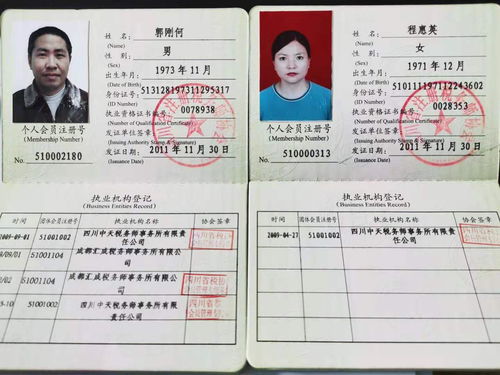 姓 名： 郭刚何
(Name)
性 别： 男
(Sex)
出生年月： 1973 年 11 月
(Date of Birth)
身份证号： 513128197311295317
(ID Number)
执业资格证书编号： 0078938
(Number of Qualification Certificate)
发证单位签章
(Issuing Authority Stamp & Signature)
发证日期： 2011 年 11 月 30 日
(Issuing Date)
个人会员注册号
(Membership Number)
No. 510002180
执业机构登记
(Business Entities Record)
时间 团体会员注册号 执业机构名称 协会签章
2009-09-01 51001002 四川中天税务师事务所有限责任公司
09/01 51001104 成都汇成税务师事务所有限公司
/02 51001104 成都汇成税务师事务所有限公司 四川省税协
-10 51001002 四川中天税务师事务所有限责任公司
姓 名： 程惠英
(Name)
性 别： 女
(Sex)
出生年月： 1971 年 12 月
(Date of Birth)
身份证号： 510111197112243602
(ID Number)
执业资格证书编号： 0028353
(Number of Qualification Certificate)
发证单位签章
(Issuing Authority Stamp & Signature)
发证日期： 2011 年 11 月 30 日
(Issuing Date)
个人会员注册号
(Membership Number)
No. 510000313
执业机构登记
(Business Entities Record)
时间 团体会员注册号 执业机构名称 协会签章
2009-04-27 51001002 四川中天税务师事务所有限责任公司